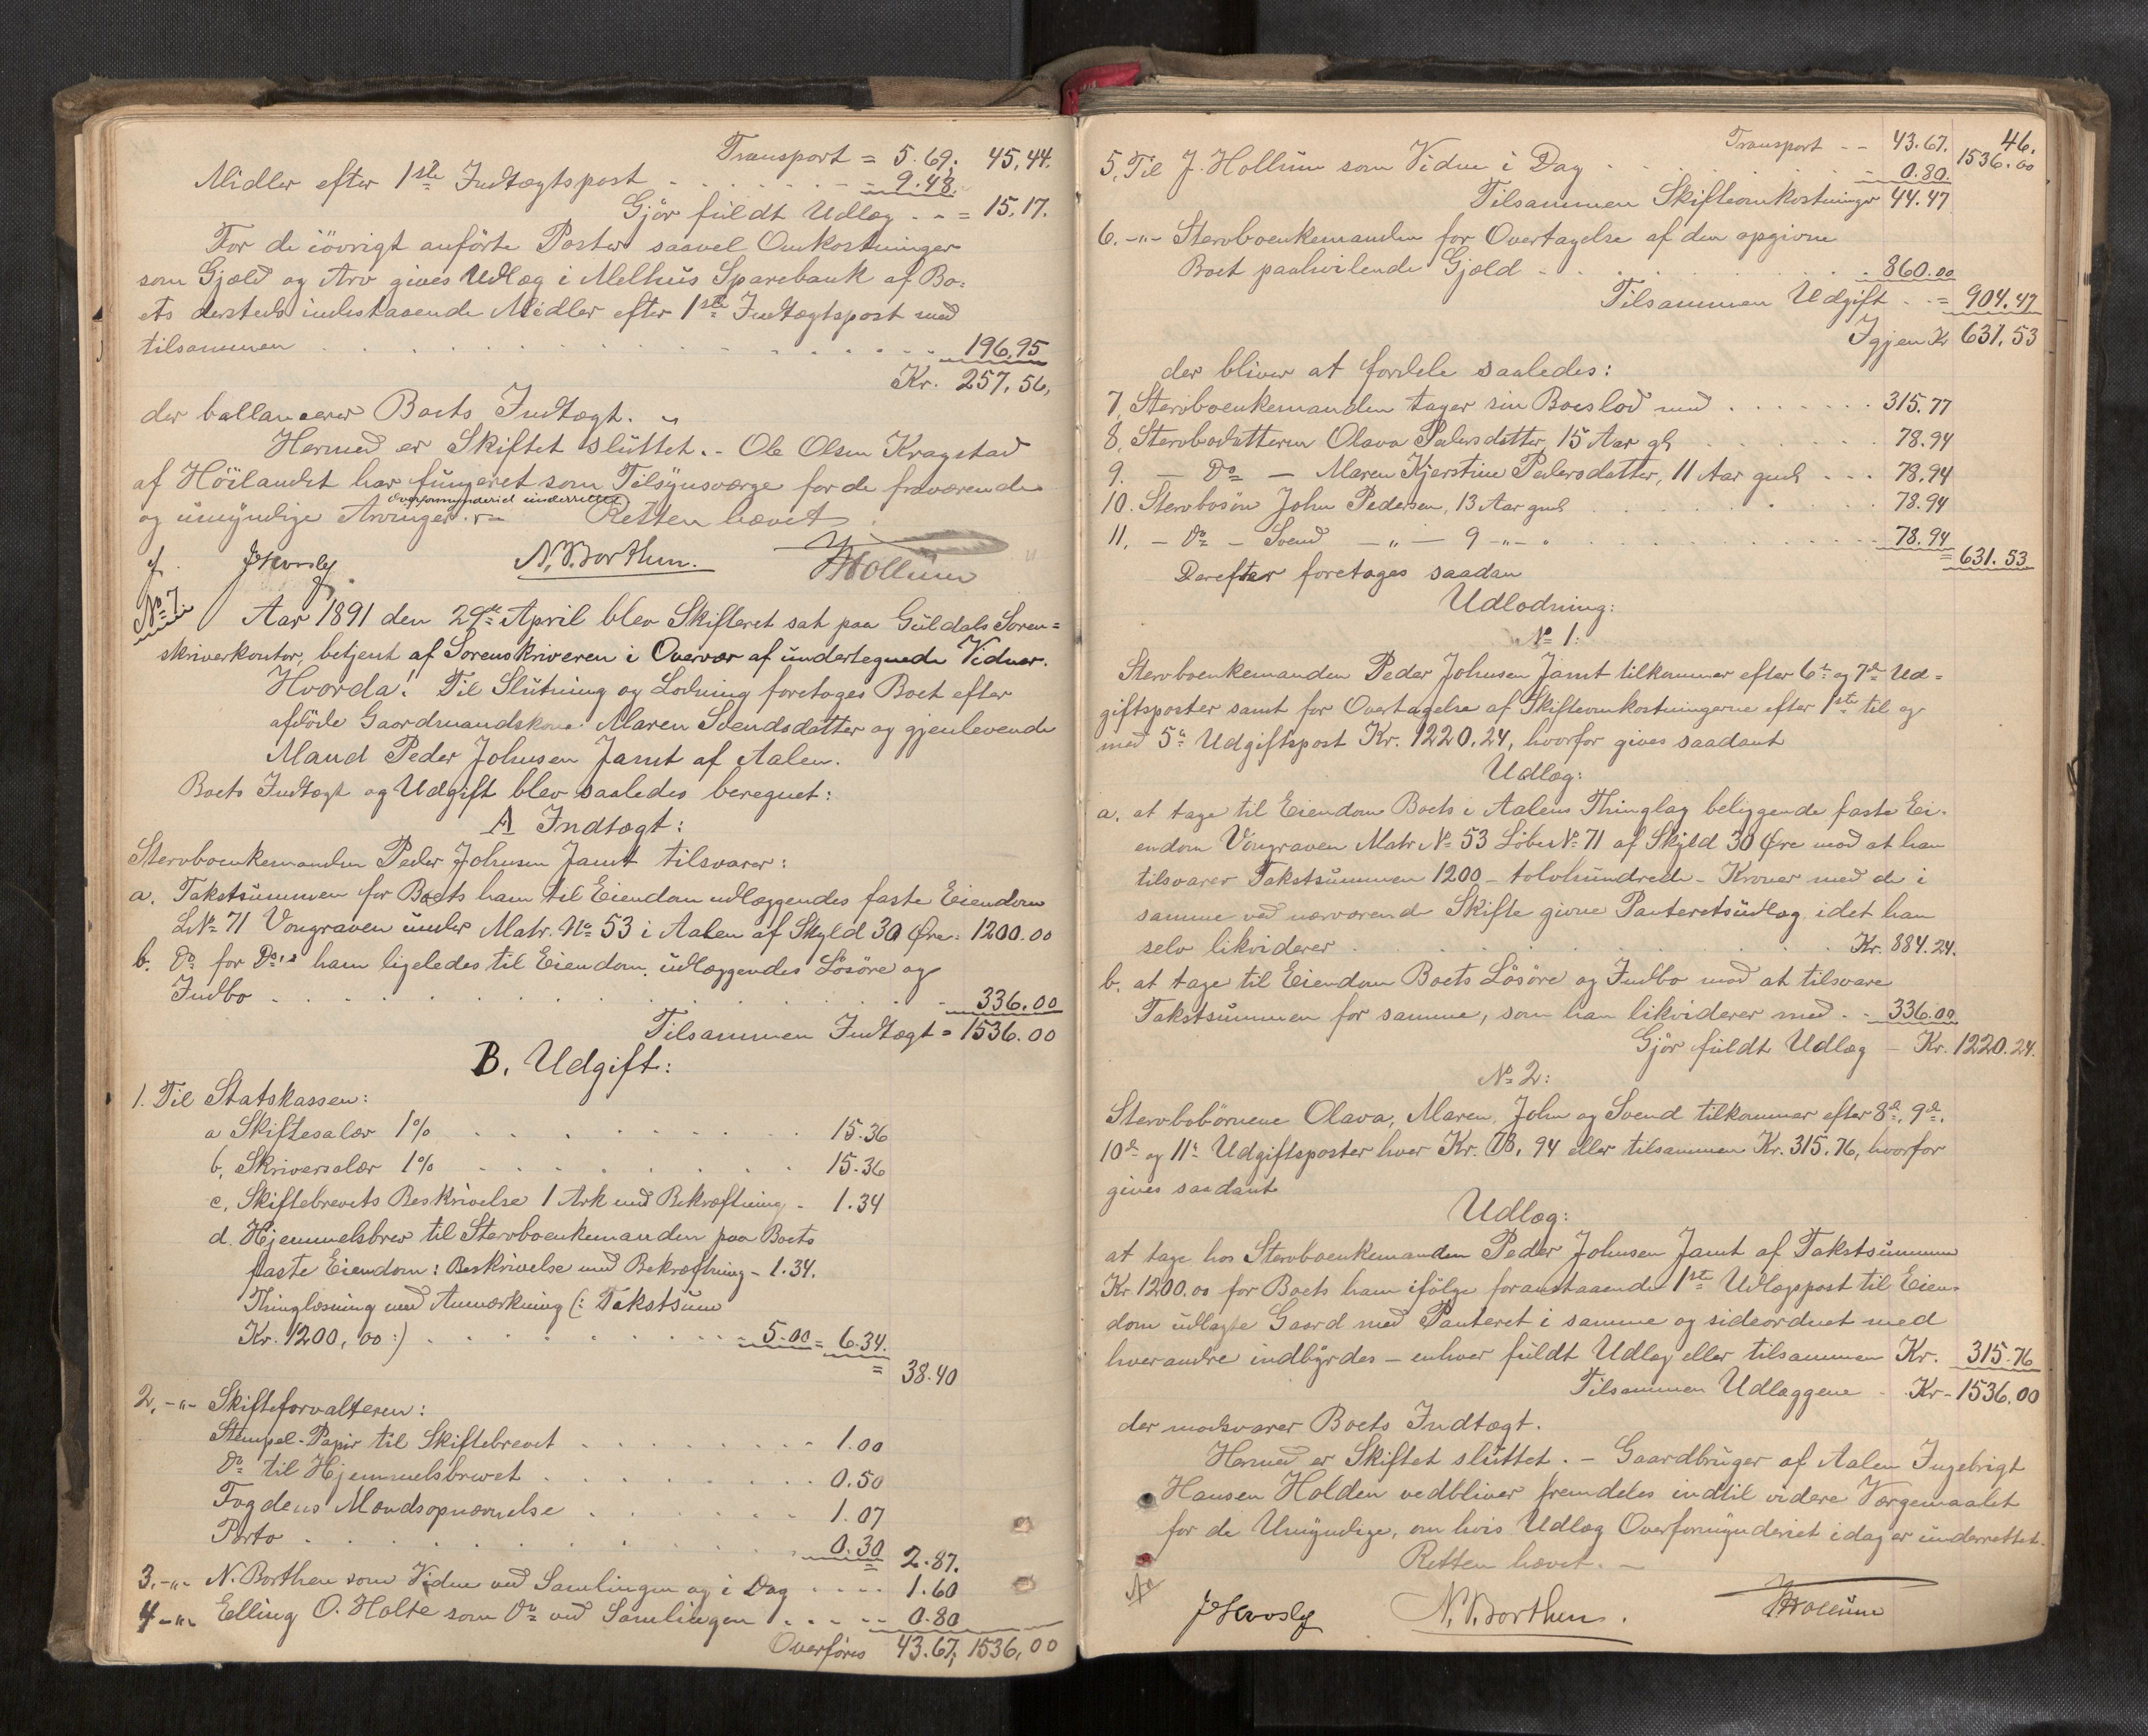 Transport = 5.69; 45,44.
Midler efter 1ste Indtægtspost . . . . . . - 9.48.
Gjør fuldt Udlæg . - = 15,17.
For de iøvrigt anførte Poster saavel Omkostninger
som Gjæld og Arv gives Udlæg i Melhus Sparebank af Bo-
ets dersteds indestaaende Midler efter 1ste Indtægtspost med
tilsammen . . . . . . . . . 196,95
Kr. 257,56,
der ballancerer Boets Indtægt.
Hermed er Skiftet sluttet. - Ole Olsen Kragstad
af Höilandet har fungeret som Tilsynsværge for de fraværende
Overformynderiet underrettet
og umyndige Arvinger. Retten hævet
N. Borthen. JHollum
No 7. Aar 1891 den 29de April blev Skifteret sat paa Guldals Soren=
skriverkontor, betjent af Sorenskriveren i Overvær af undertegnede Vidner.
Hvorda! Til Slutning og Lodning foretoges Boet efter
afdöde Gaardmandskone Maren Svendsdatter og gjenlevende
Mand Peder Johnsen Jamt af Aalen.
Boets Indtægt og Udgift blev saaledes beregnet:
A Indtægt:
Stervboenkemanden Peder Johnsen Jamt tilsvarer:
a. Takstsummen for Boets ham til Eiendom udlæggendes faste Eiendom
LNo 71 Vongraven under Matr. No 53 i Aalen af Skyld 30 Øre. 1200.00
b. Do for Do's ham ligeledes til Eiendom udlæggendes Lösöre og
Indbo . . . . . . . . . 336.00
Tilsammen Indtægt = 1536.00
B. Udgift:
1. Til Statskassen:
a Skiftesalær 1% . . . . . . 15.36
b, Skriversalær 1% . . . . . . 15.36
c, Skiftebrevets Beskrivelse 1 Ark med Bekræftning - 1.34
d. Hjemmelsbrev til Stervboenkemanden paa Boets
faste Eiendom: Beskrivelse med Bekræftning - 1.34.
Thinglæsning med Anmærkning (: Takstsum
Kr. 1200,00 :) . . . . . . 5.00 = 6.34.
= 38.40
2, -"- Skifteforvalteren:
Stempel-Papir til Skiftebrevet . . . . . . 1.00
Do til Hjemmelsbrevet . . . . . . 0.50
Fogdens Mandsopnævnelse . . . . . . 1.07
Porto . . . . . . 0.30 2.87.
3. -"- N. Borthen som Vidne ved Samlingen og i Dag . . . . 1.60
4 -"- Elling O. Holte som Do ved Samlingen . . . . 0.80
Overføres 43.67; 1536,00
46.
Transport - - 43.67. 1536.00
5, Til J. Hollum som Vidne i Dag . . . . . 0.80.
Tilsammen Skifteomkostninger 44.47
6. -"- Stervboenkemanden for Overtagelse af den opgivne
Boet paahvilende Gjæld . . . . . . 860.00
Tilsammen Udgift . . = 904.47
Igjen Kr 631,53
der bliver at fordele saaledes:
7, Stervboenkemanden tager sin Boeslod med . . . . . 315.77
8, Stervbodatteren Olava Pedersdatter, 15 Aar gl . . . . . 78.94
9. - Do - Maren Kjerstine Pedersdatter, 11 Aar gml . . . 78,94
10. Stervbosön John Pedersen, 13 Aar gml . . . . . 78.94
11, - Do - Svend -"- 9 -"- . . . . . 78.94
= 631.53
Derefter foretoges saadan
Udlodning:
No 1:
Stervboenkemanden Peder Johnsen Jamt tilkommer efter 6te og 7de Ud=
giftsposter samt for Overtagelse af Skifteomkostningerne efter 1ste til og
med 5te Udgiftspost Kr. 1220.24, hvorfor gives saadant
Udlæg:
a. at tage til Eiendom Boets i Aalens Thinglag beliggende faste Ei-
endom Vongraven Matr No 53 Löbe No 71 af Skyld 30 Øre mod at han
tilsvarer Takstsummen 1200 - tolvhundrede - Kroner med de i
samme ved nærværende Skifte givne Panteretsudlæg, idet han
selv likviderer . . . . . . Kr. 884.24.
b, at tage til Eiendom Boets Lösöre og Indbo mod at tilsvare
Takstsummen for samme, som han likviderer med . - 336.00
Gjör fuldt Udlæg - Kr. 1220.24.
No 2:
Stervbobörnene Olava, Maren, John og Svend tilkommer efter 8de, 9de,
10de og 11te Udgiftsposter hver Kr. 78,94 eller tilsammen Kr. 315,76, hvorfor
gives saadant
Udlæg:
at tage hos Stervboenkemanden Peder Johnsen Jamt af Takstsummen
Kr 1200.00 for Boets ham ifölge foranstaaende 1ste Udlægspost til Eien-
dom udlagte Gaard med Panteret i samme og sideordnet med
hverandre indbyrdes - enhver fuldt Udlæg eller tilsammen Kr. 315.76
Tilsammen Udlæggene - Kr - 1536.00
der modsvarer Boets Indtægt.
Hermed er Skiftet sluttet. - Gaardbruger af Aalen Ingebrigt
Hansen Holden vedbliver fremdeles indtil videre Værgemaalet
for de Umyndige, om hvis Udlæg Overformynderiet idag er underrettet.
Retten hævet. -
N. Borthen. JHollum